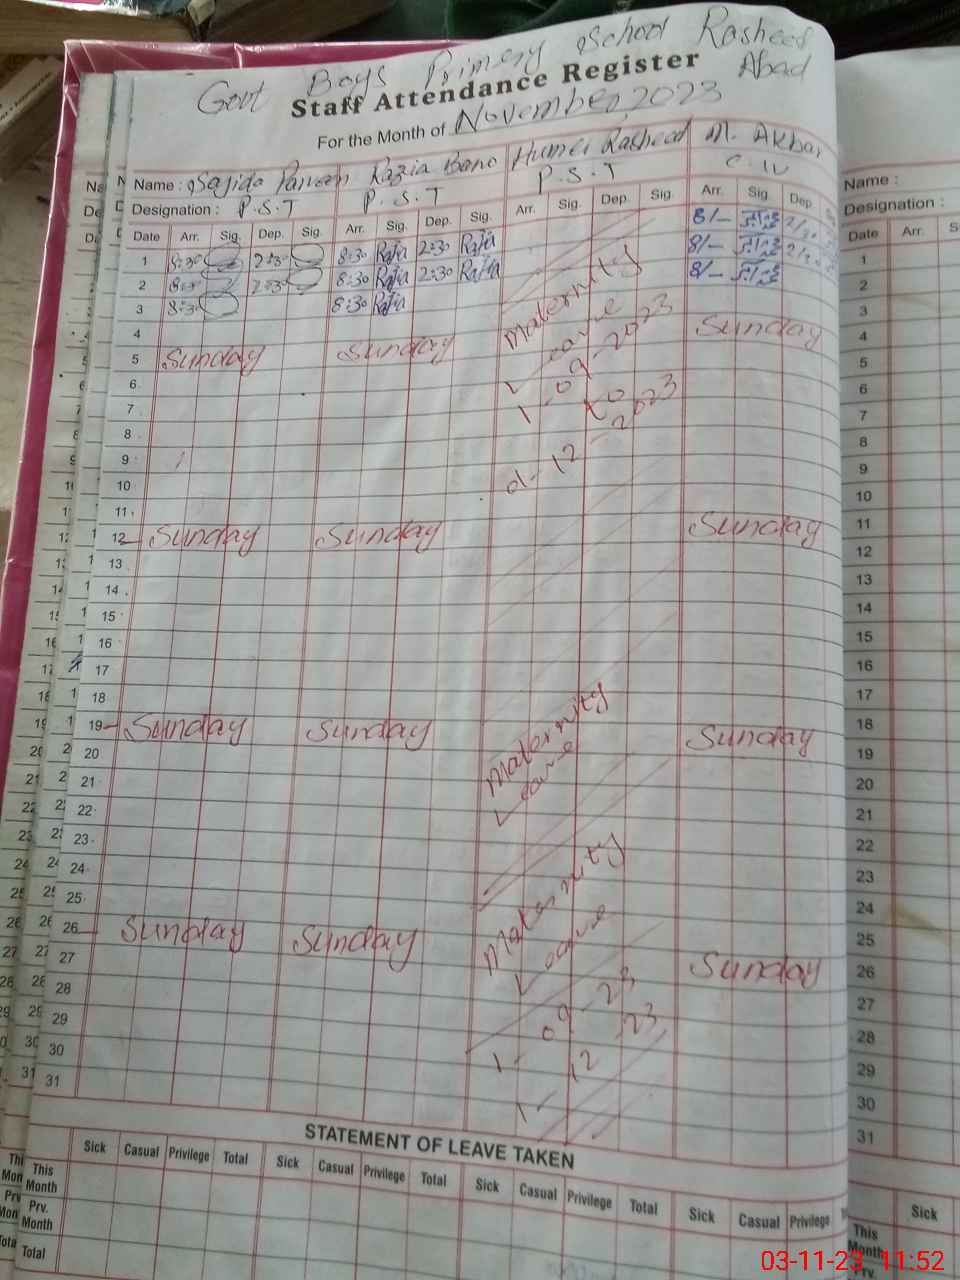 Govt Boys Primery School Rasheed Abad
Staff Attendance Register
For the Month of November, 2023
Name : Sajida Parveen Razia Bano Humei Rasheed M. Akbar
Designation : P.S.T P.S.T P.S.T C. IV
Date Arr. Sig. Dep. Sig. Arr. Sig. Dep. Sig. Arr. Sig. Dep. Sig. Arr. Sig. Dep.
1 8:30 2:30 8:30 Razia 2:30 Razia 8/-
2 8:30 2:30 8:30 Razia 2:30 Razia 8/-
3 8:30 8:30 Razia 8/-
4
5 Sunday Sunday Sunday
6
7
8
9
10
11
12 Sunday Sunday Sunday
13
14
15
16
17
18
19 Sunday Sunday Sunday
20
21
22
23
24
25
26 Sunday Sunday Sunday
27
28
29
30
31
Maternity
Leave
1-09-2023
to
12-2023
Maternity
Leave
Maternity
Leave
1-09-23
1-12-23
STATEMENT OF LEAVE TAKEN
Sick Casual Privilege Total Sick Casual Privilege Total Sick Casual Privilege Total Sick Casual Privilege
This Month
Prv. Month
Total
Name :
Designation :
Date Arr.
1
2
3
4
5
6
7
8
9
10
11
12
13
14
15
16
17
18
19
20
21
22
23
24
25
26
27
28
29
30
31
Sick
This Month
Prv.
03-11-23 11:52